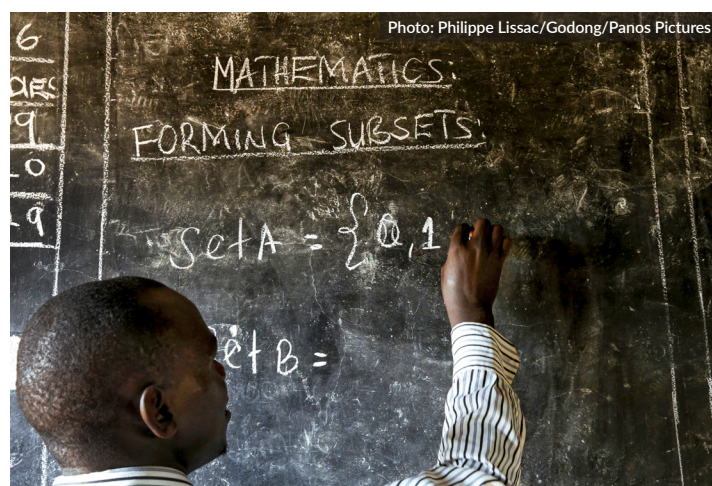 Photo: Philippe Lissac/Godong/Panos Pictures
6
9
0
9
MATHEMATICS:
FORMING SUBSETS:
Set A = { 0, 1
Set B =